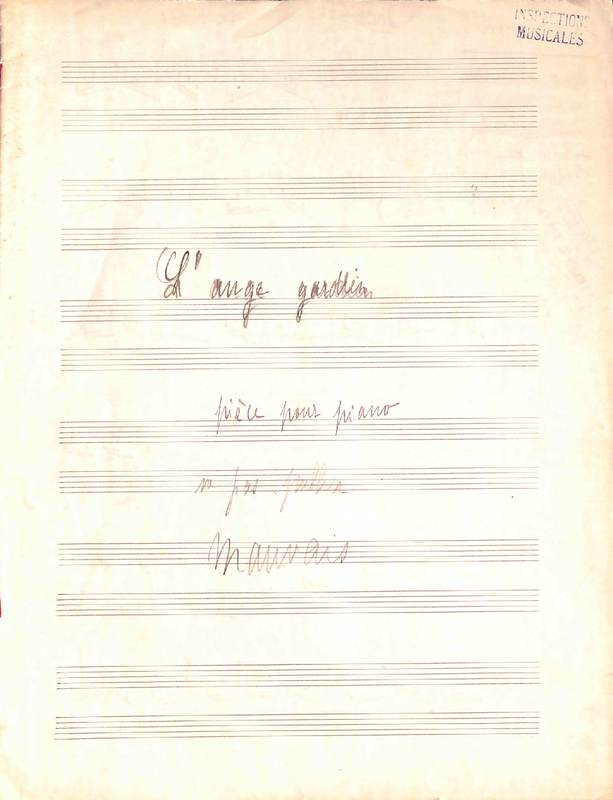 INSPECTIONS
MUSICALES
L'ange gardien
pièce pour piano
pas publier
Mauvais